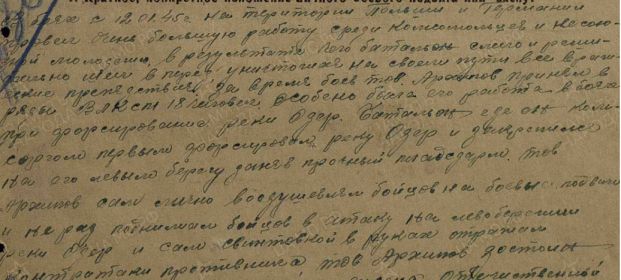 I Краткое, конкретное изложение личного боевого подвига или заслуг
В боях с 12.01.45г. на територии Польши и Германии
провел очень большую работу среди комсомольцев и несоюз-
ной молодежи, в результате чего батальон смело и реши-
тельно шел в перед уничтожая на своем пути все враже-
ские препятствия. За время боев тов. Архипов принял в
ряды ВЛКСМ 18 человек, особено была его работа в боях
при форсировании реки Одер. Батальон где он ком-
соргом первым форсировал реку Одер и закрепился
на его левом берегу заняв прочный плацдарм. Тов
Архипов сам лично воодушевлял бойцов на боевые подвиги
и не раз поднимал бойцов в атаку на левобережии
реки Одер и сам с винтовкой в руках отражал
контратаки противника, тов Архипов достоин
Отечественной